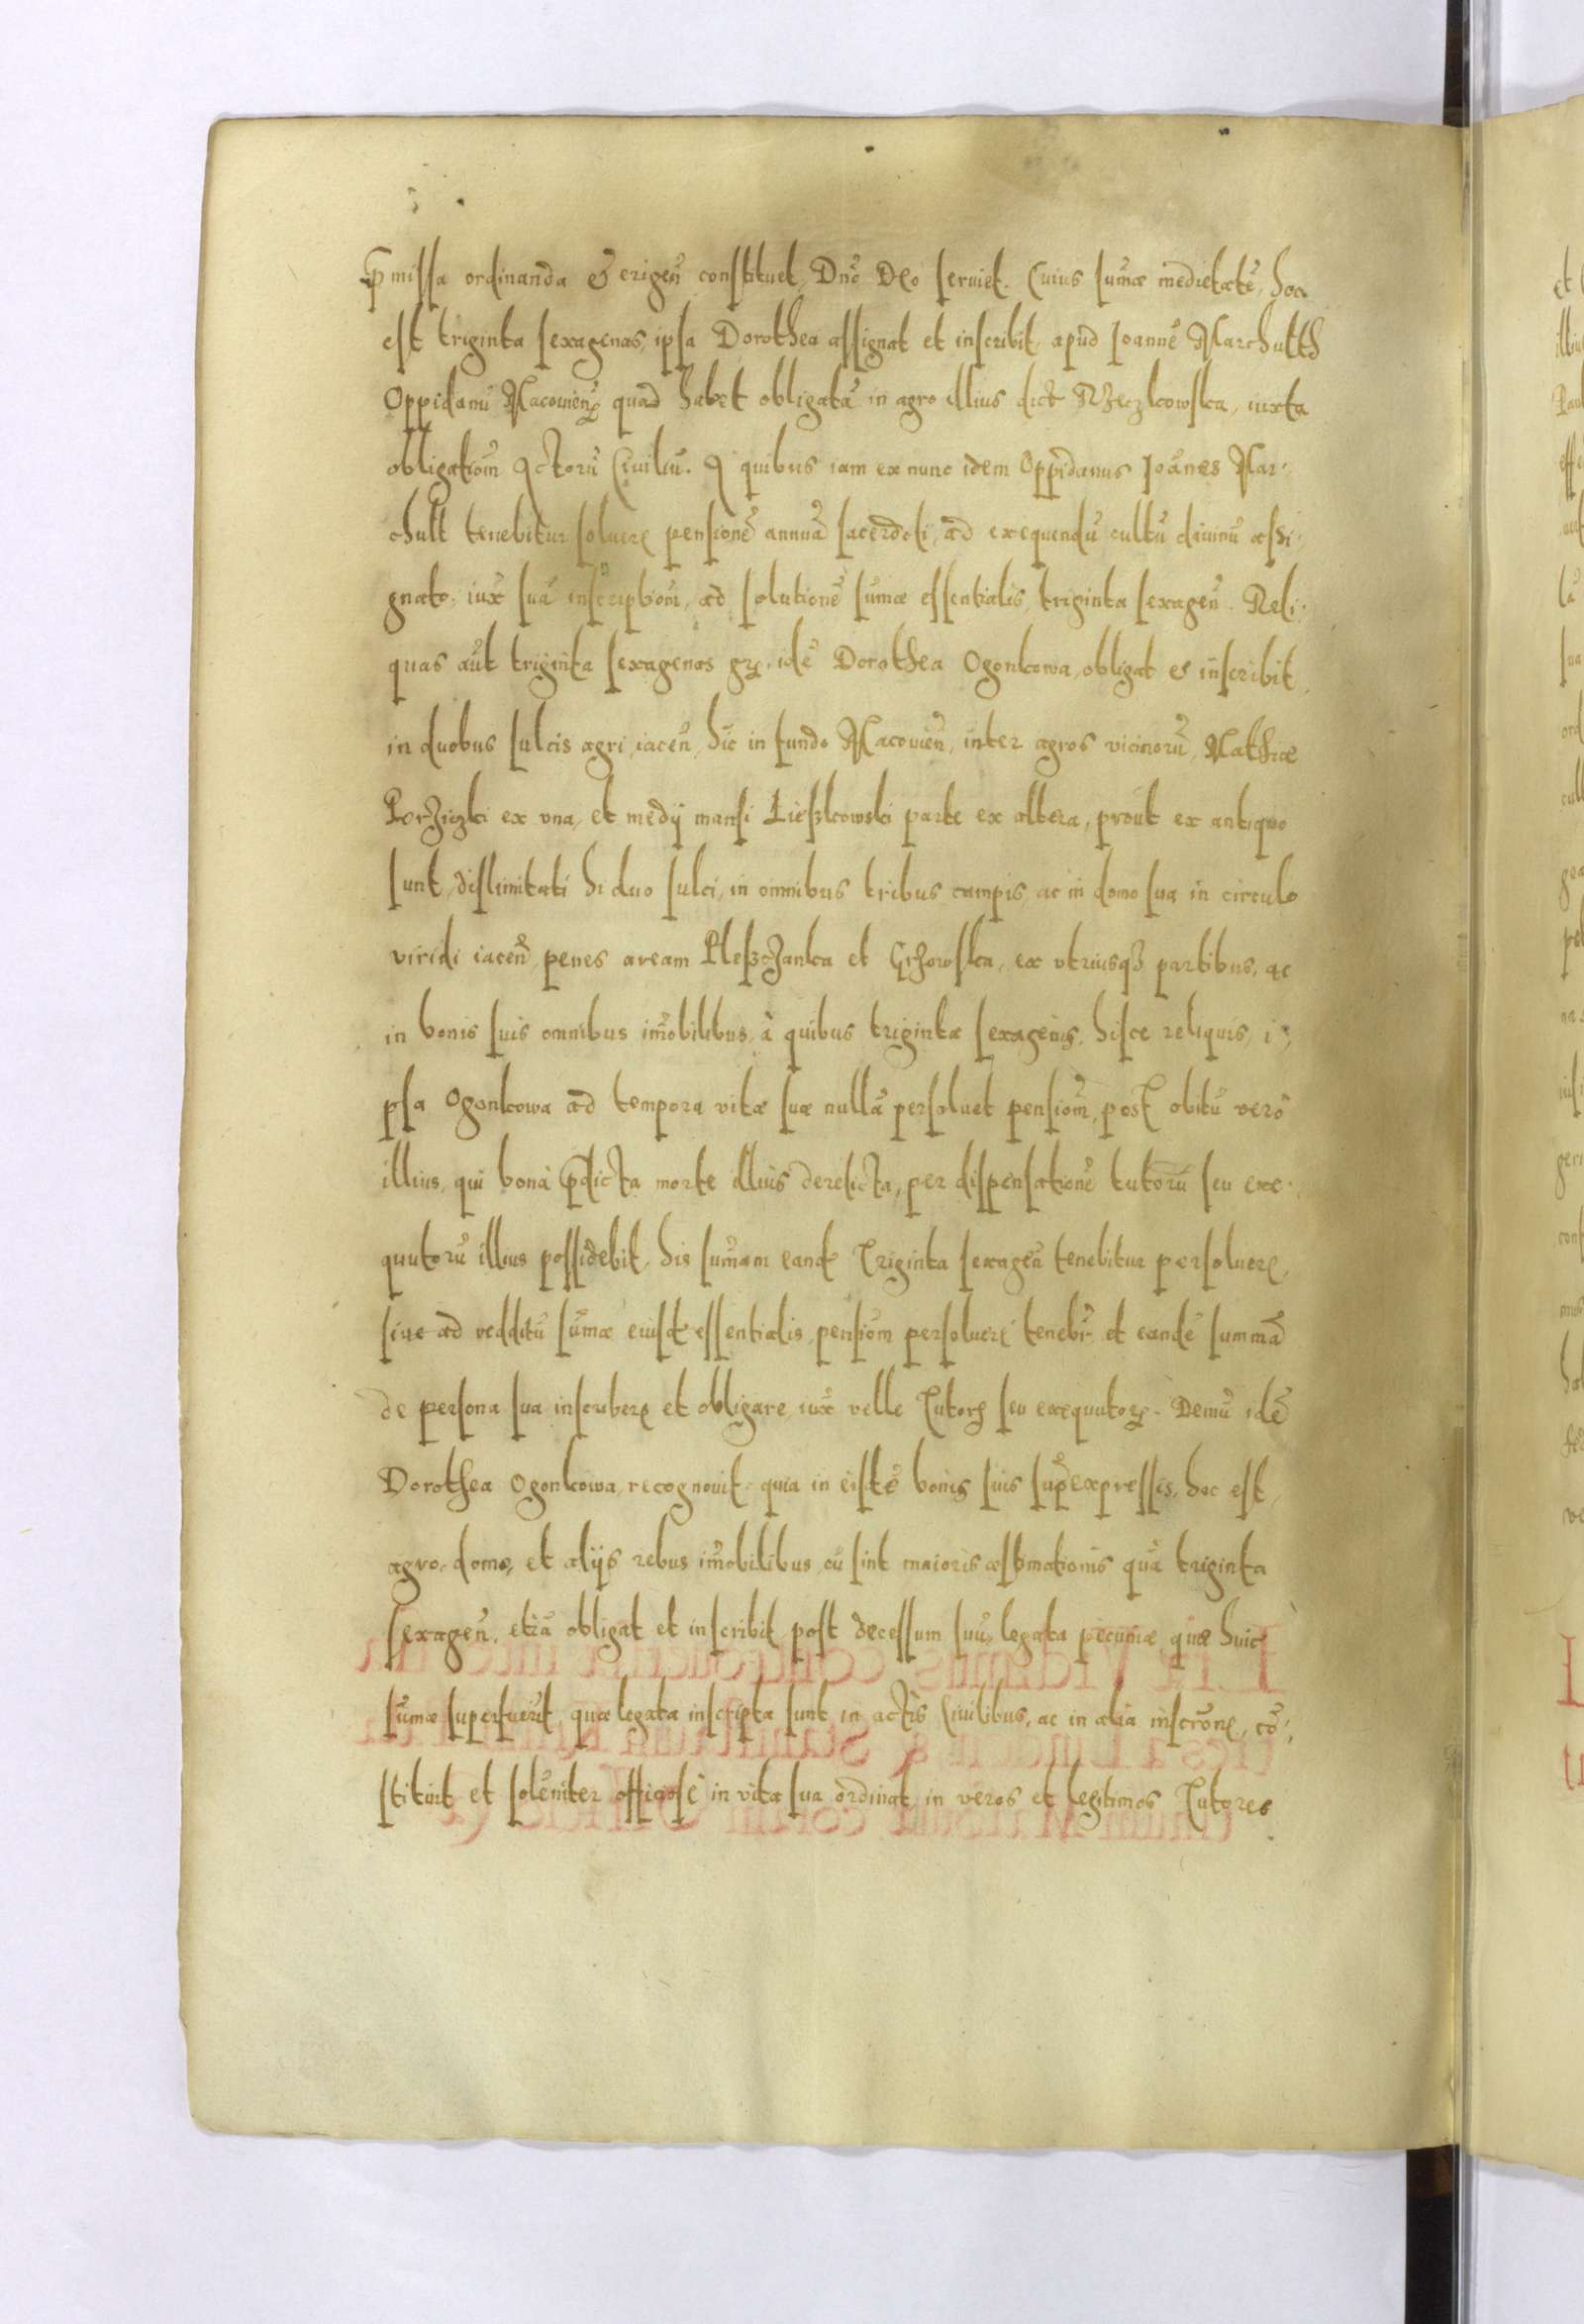 p̄missa ordinanda & erigen̄ constituet, Dnō Deo seruiet. Cuius sum̄æ medietatē, hoc
est triginta sexagenas, ipsa Dorothea assignat et inscribit, apud Joannē Marchutth
Oppidanū Macouien̄ quad habet obligatā in agro illius dict, iuxta
obligatiom̄ Actorū Ciuiliū. A quibus iam ex nunc idem Oppidanus Joānes Mar-
chutt tenebitur soluere pensionē annuā sacerdoti, ad exequendū cultū diuinū assi-
gnato, iux̄ suā inscriptiom̄, ad solutionē sum̄æ essentialis, triginta sexagen̄. Reli-
quas aūt triginta sexagenas gr̄, idē Dorothea Ogonkowa, obligat & inscribit,
in duobus sulcis agri, iacen̄, hīc in fundo Macouien̄, inter agros vicinorū, Mathiæ
ex vna, et medij mansi Lieszkowski parte ex altera, prout ex antiquo
sunt, dislimitati hi duo sulci, in omnibus tribus campis, ac in domo sua in circulo
viridi iacen̄, penes aream et, ex vtriusq̄ partibus, ac
in bonis suis omnibus im̄obilibus, à quibus triginta sexagenis, hisce reliquis, i-
psa Ogonkowa ad tempora vitæ suæ nullā persoluet pensiom̄, post obitū verò
illius, qui bona p̄dicta morte illius derelicta, per dispensationē tutorū seu exe-
quutorū illius possidebit, his sum̄am eand triginta sexagen̄ tenebitur persoluere,
siue ad redditū sum̄æ eiusd essentialis, pensiom̄ persoluere tenebr̄, et eandē summā
de persona sua inscribere et obligare, iux̄ velle Tutorę seu exequutorę. Demū idē
Dorothea Ogonkowa, recognouit, quia in eisdē bonis suis sup̄expressis, hoc est,
agro, domo, et alijs rebus im̄obilibus, cū sint maioris æstimationis quā triginta
sexagen̄, etiā obligat et inscribit, post decessum suū, legata pecuniæ, quæ huic
sum̄æ superfuerit, quæ legata inscripta sunt in actis Ciuilibus, ac in alia inscrōne, cō-
stituit et solēniter officiose in vita sua ordinat, in veros et legitimos Tutores